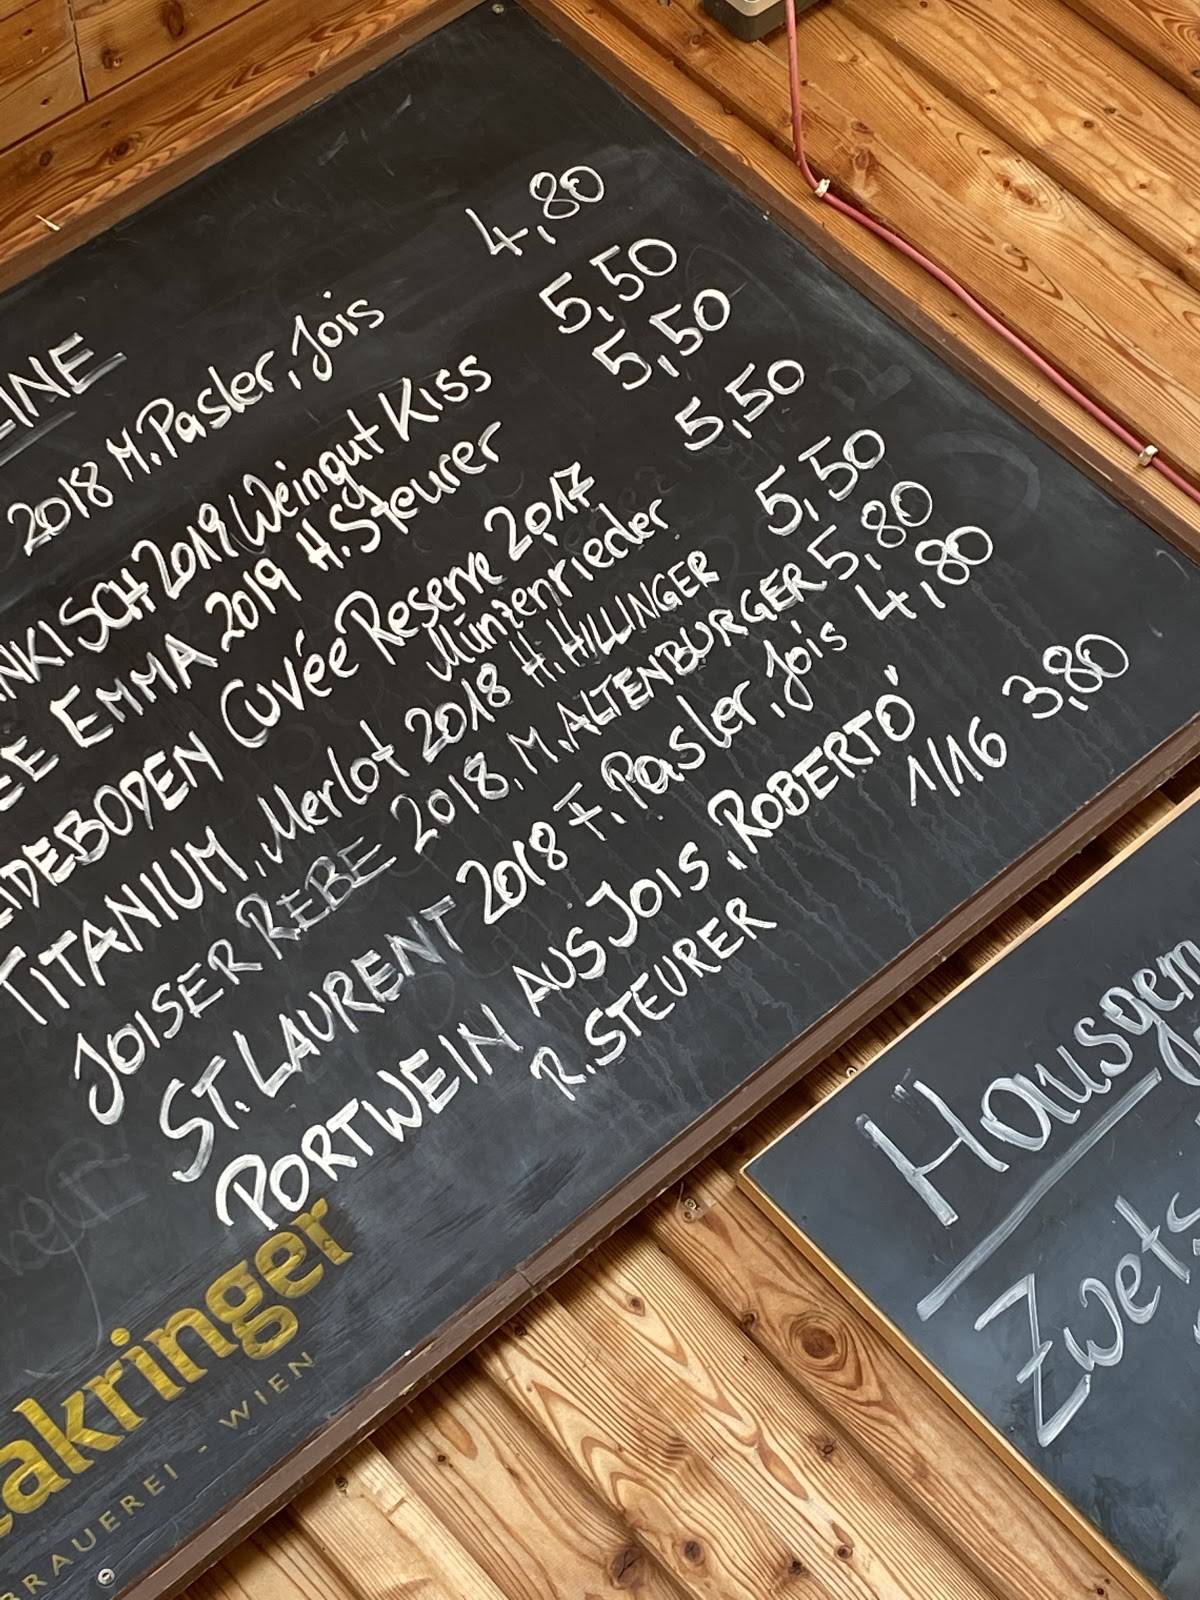 EINE
2018 M. Pasler, Jois 4,80
NKISCH 2019 Weingut Kiss 5,50
EE EMMA 2019 H. Steurer 5,50
ADEBODEN Cuvée Reserve 2017 5,50
Münzenrieder
TITANIUM, Merlot 2018 H. HILLINGER 5,50
JOISER REBE 2018. M. ALTENBURGER 5,80
ST. LAURENT 2018 F. Pasler, Jois 4,80
PORTWEIN AUS JOIS „ROBERTO"
R. STEURER 1/16 3,80
akringer
BRAUEREI - WIEN
Hausgem
Zwets